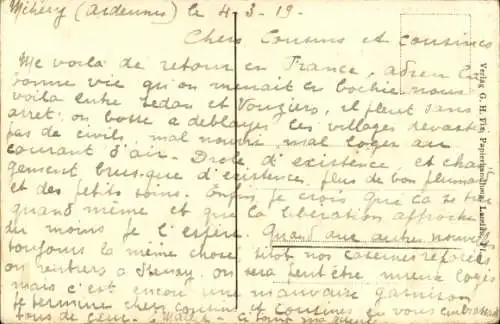 (Ardennes) le 4-3-19.
Chers Cousins et cousines
Me voilà de retour en France, adieu la
bonne vie qu'on menait en bochie, nous
voila entre Sedan et Vouziers, il pleut sans
arret; on bosse a deblayer les villages devastes
pas de civils, mal nourri, mal loger au
courant d'air. Drole d'existence et chan
gement brusque d'existences, plus de bon plumard
et des petits soins. Enfin je crois que ca se tire
quand même et que la liberation approche
du moins je l'espère. Quand aux autres nouvelles
toujours la même chose, sitot nos casernes reparées
on rentrera a Stenay, on sera peut être mieux logés
mais c'est encore une mauvaise garnison
Je termine chers cousins et cousines en vous embrassant
tous de coeur.
Verlag G. H. Fix, Papierhandlung, Landau, Pf.